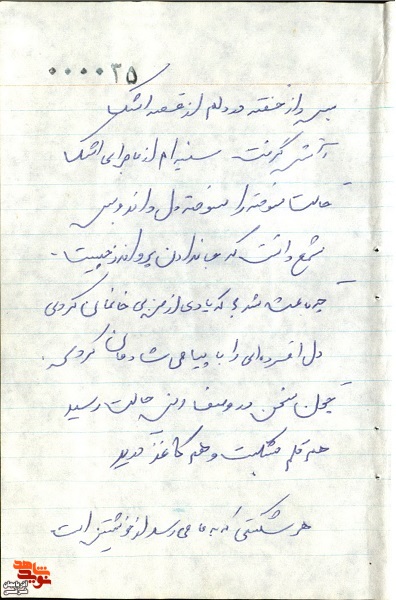 ۰۰۰۰۳۵
بس راز خفته در دلم از قصه اشک
آتش گرفت سینه ام از ماجرای اشک
حالت سوخته را سوخته دل داند و بس
شمع دانست که جان دادن پروانه ز چیست.
چه باعث شد که یادی از من بی خانمان کردی
دل افسرده ای را با پیامی شادمان کردی.
چون سخن در وصف این حالت رسید
هم قلم بشکست و هم کاغذ درید
هر شکستی که به ما می رسد از خویشتن است
نوید شاهد